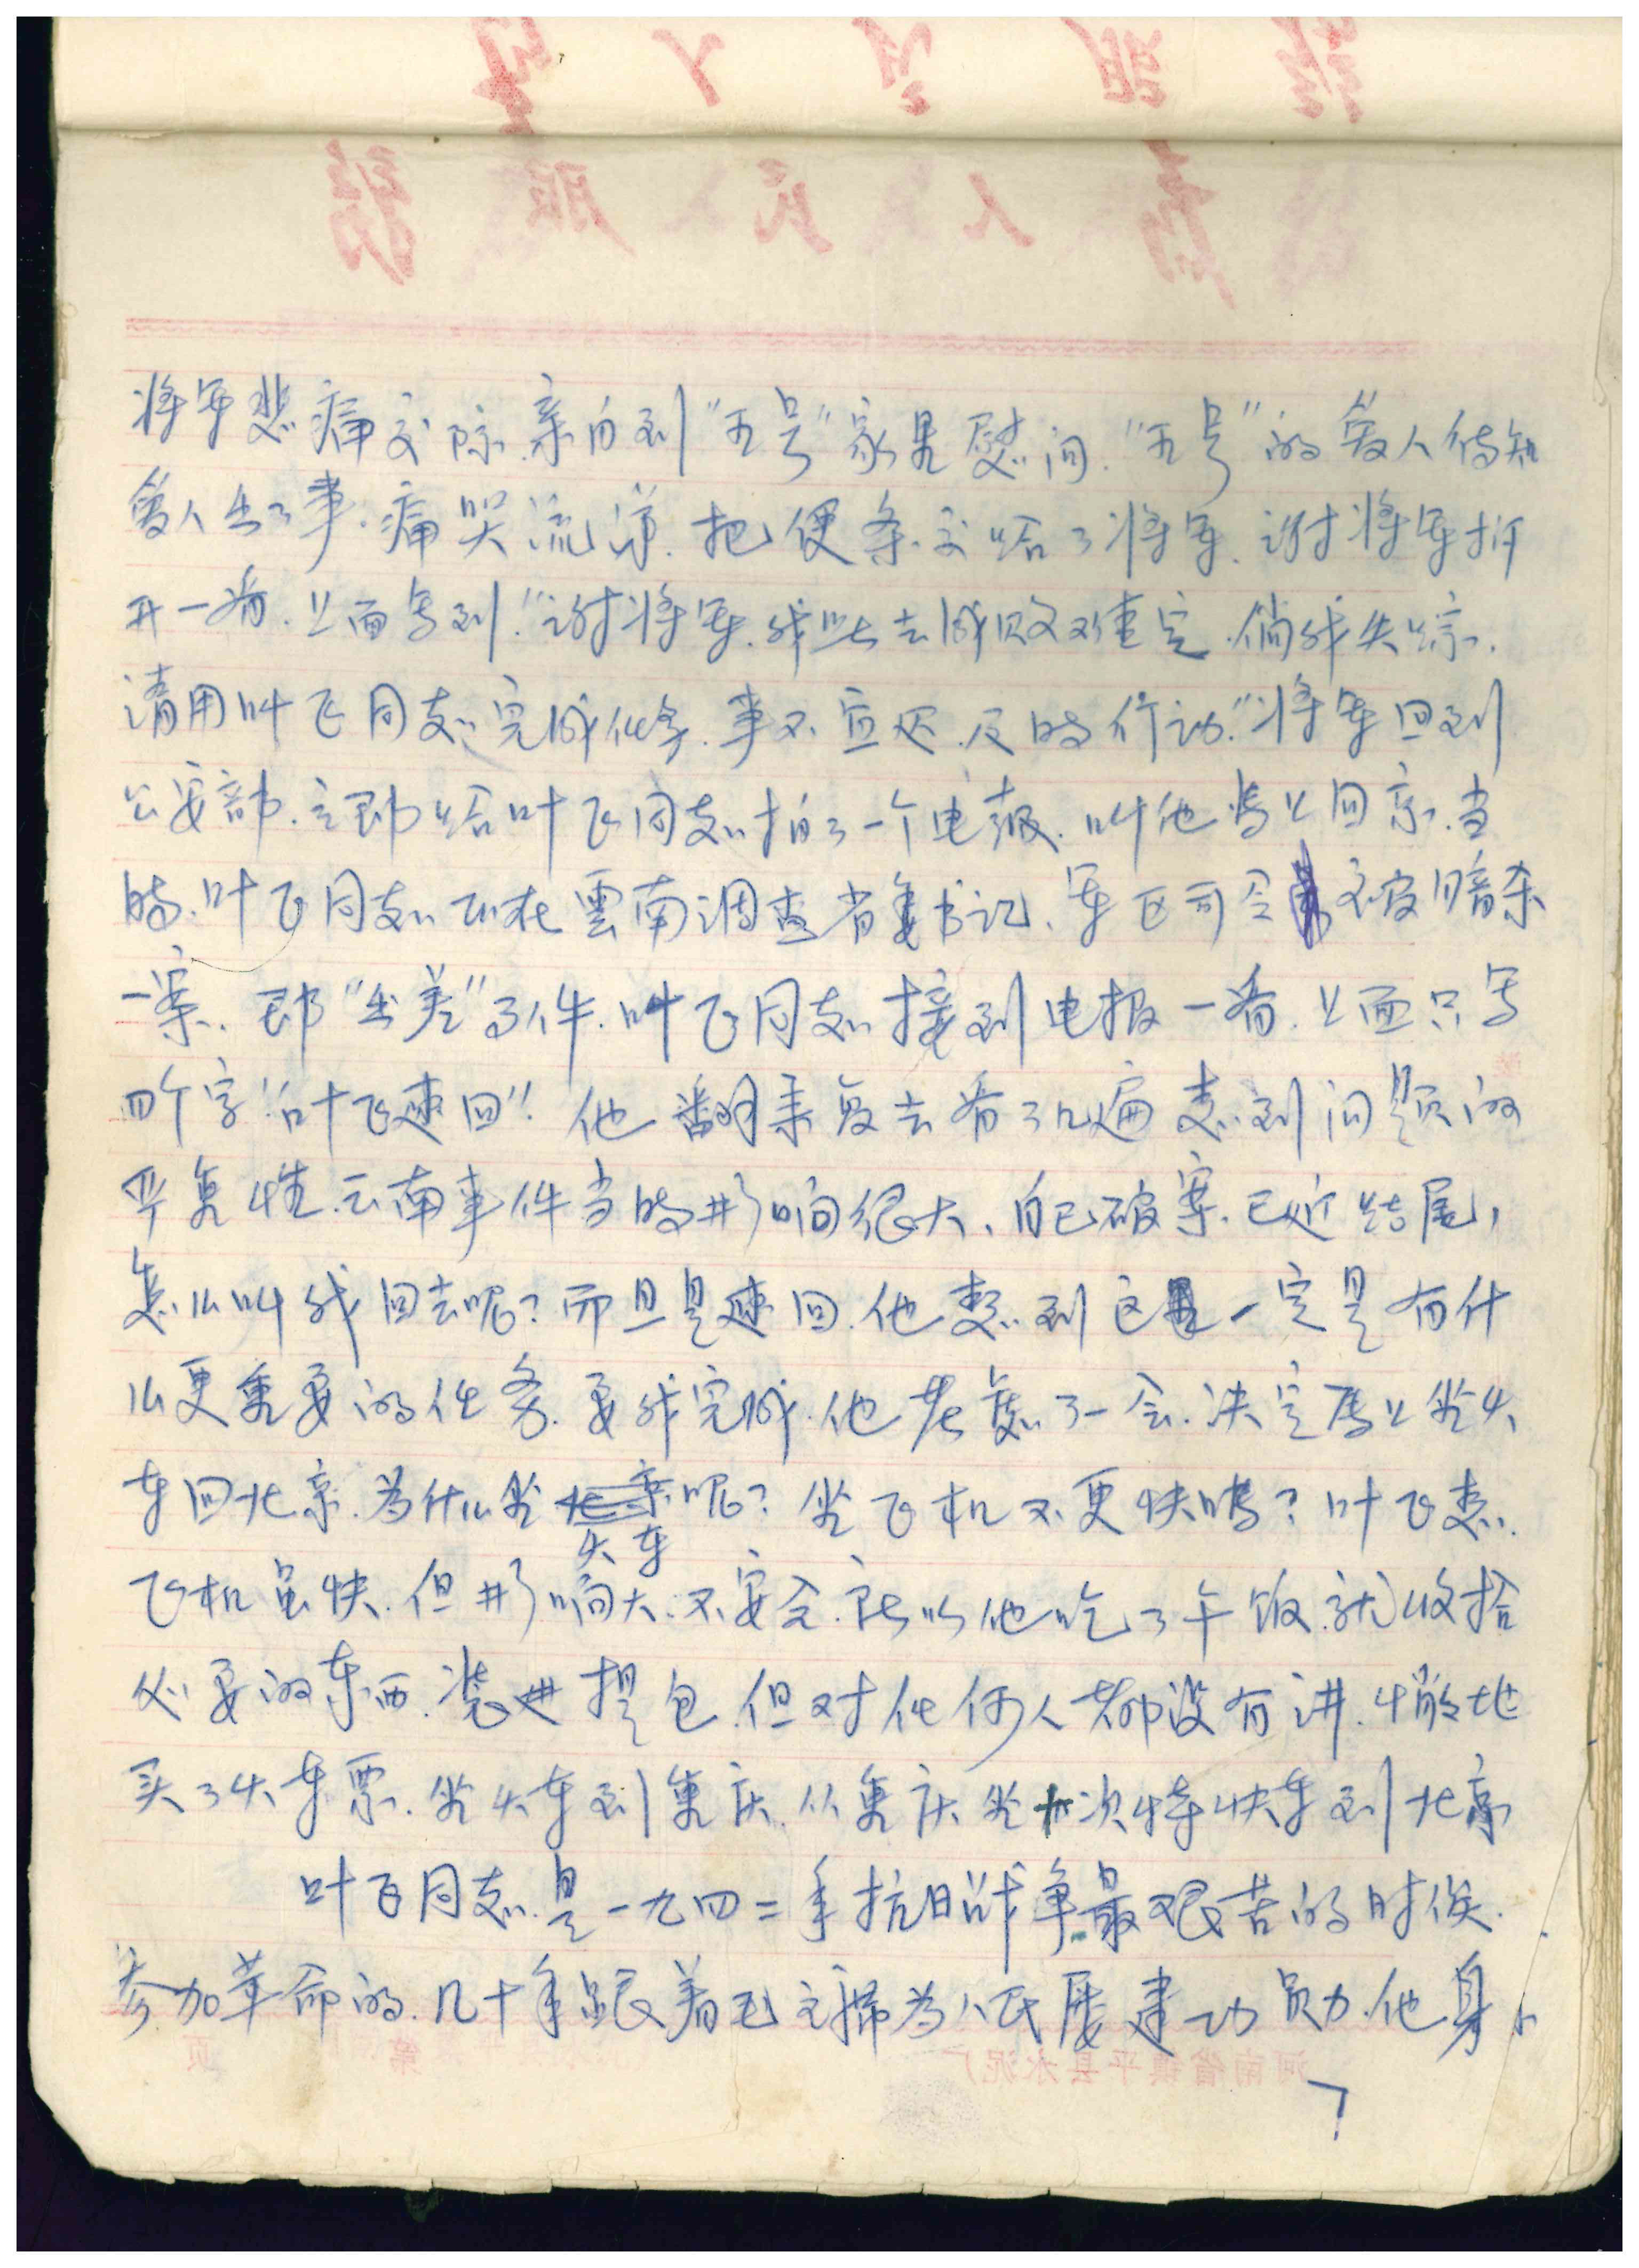 为人民服务
将军悲痛交际.亲自到"五号"家里慰问."五号"的爱人得知
爱人出了事.痛哭流涕.把便条交给了将军.谢将军拆
开一看.上面写到."谢将军.我此去成败难定.倘我失踪.
请用叶飞同志完成任务.事不宜迟.及时行动."将军回到
公安部.立即给叶飞同志拍了一个电报.叫他马上回京.当
时.叶飞同志正在雲南调查省委书记、军区司令被暗杀
一案.即"出差"事件.叶飞同志接到电报一看.上面只写
四个字"叶飞速回".他翻来复去看了几遍.想到问题的
严重性.云南事件当时影响很大、自己破案.已近结尾,
怎么叫我回去呢?而且是速回.他想到这里一定是有什
么更重要的任务.要我完成.他考虑了一会.决定马上坐火
车回北京.为什么坐火车呢?坐飞机不更快吗?叶飞想.
飞机虽快.但影响大.不安全.所以他吃了午饭.就收拾
必要的东西.装进提包.但对任何人都没有讲.悄悄地
买了火车票.坐火车到重庆.从重庆坐十次特快车到北京
叶飞同志.是一九四二年抗日战争最艰苦的时候.
参加革命的.几十年跟着毛主席为人民屡建功勋.他身
河南省镇平县水泥厂 第 页
7